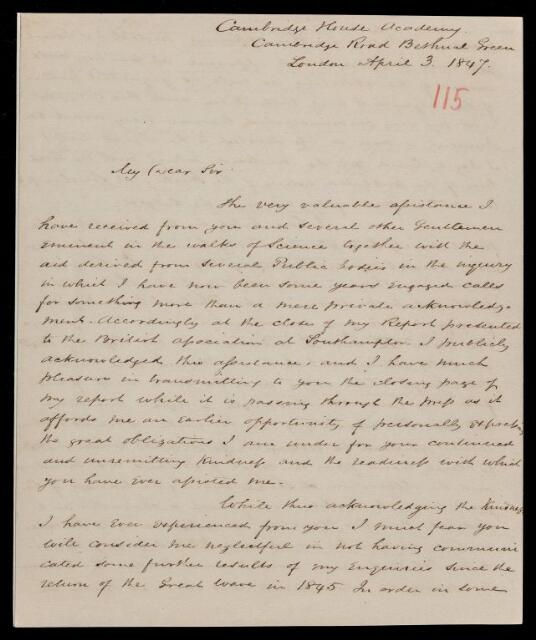 Cambridge House Academy.
Cambridge Road Bethnal Green
London April 3. 1847.
115
My Dear Sir
The very valuable assistance I
have received from you and several other Gentlemen
eminent in the walks of Science together with the
aid derived from several Public bodies in the inquiry
in which I have now been some years engaged calls
for something more than a mere private acknowledg
ment. Accordingly at the close of my Report presented
to the British Association at Southampton I publicly
acknowledged this assistance, and I have much
pleasure in transmitting to you the closing page of
my report while it is passing through the press as it
affords me an earlier opportunity of personally expressing
the great obligations I am under for your continued
and unremitting kindness and the readiness with which
you have ever assisted me.
While thus acknowledging the kindness
I have ever experienced from you I must fear you
will consider me neglectful in not having communi
cated some further results of my enquiries since the
return of the Great Wave in 1845. In order in some